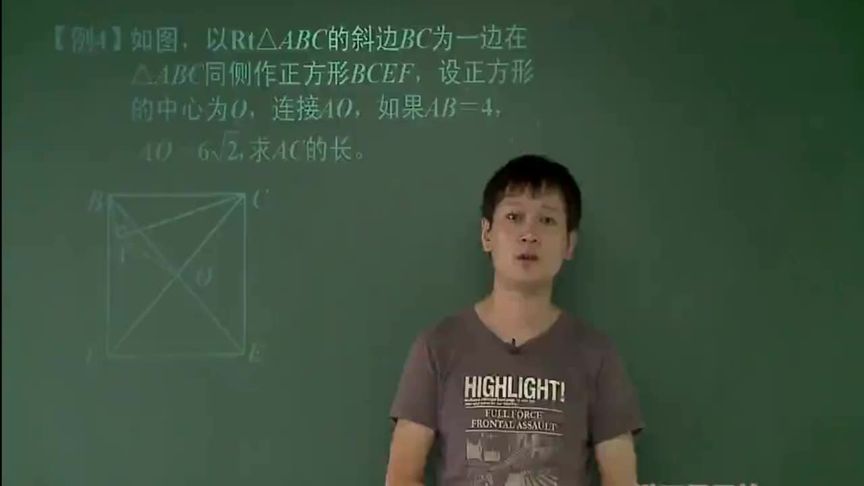 【例4】如图，以Rt△ABC的斜边BC为一边在
△ABC同侧作正方形BCEF，设正方形
的中心为O，连接AO，如果AB=4，
AO=6√2，求AC的长。
B
C
O
E
HIGHLIGHT!
FULL FORCE
FRONTAL ASSAULT